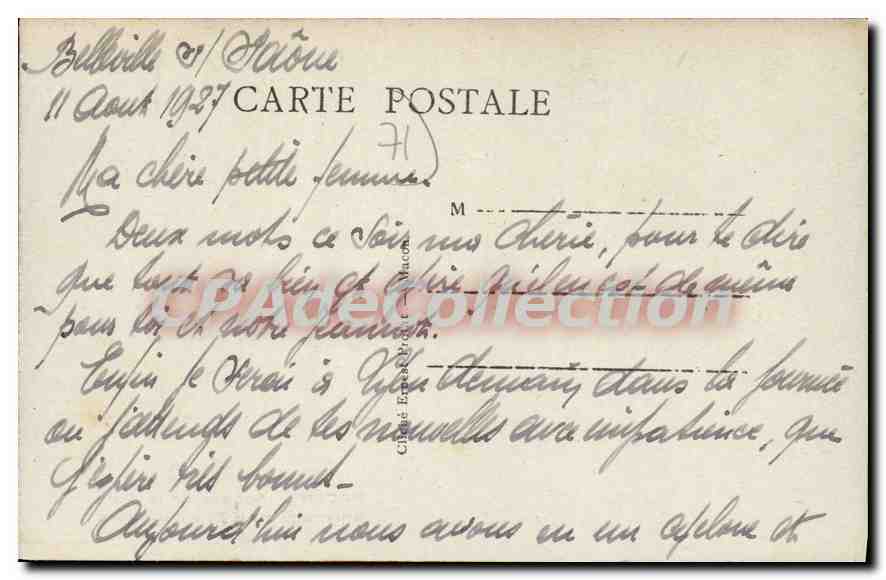 Belleville s/ Saône
11 Aout 1927
CARTE POSTALE
71
Ma chère petite femme.
M
Deux mots ce Soir ma chérie, pour te dire
que tout va bien et désire qu'il en est de même
pour toi et notre Jeannot.
Enfin je serai à Lyon demain dans la journée
ou j'attends de tes nouvelles avec impatience, que
j'espère très bonnes -
Aujourd'hui nous avons eu un cyclone et
Cliché Ernest Macon
CPAdeCollection